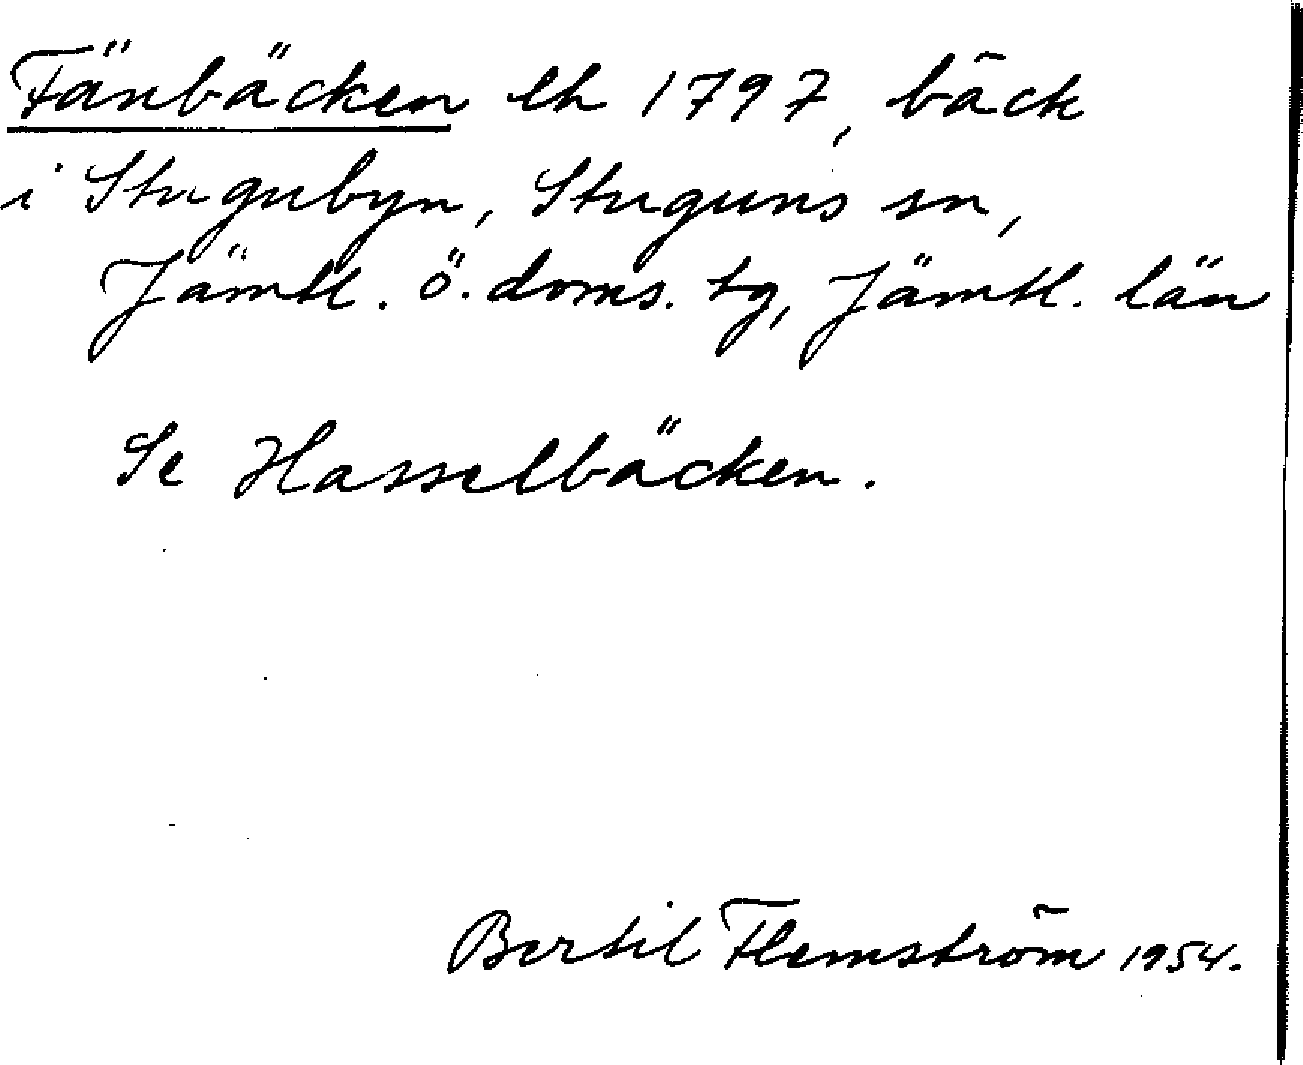 Fänbäcken lh 1797, bäck
i Stugubyn, Stuguns sn,
Jämtl. ö. doms. tg, Jämtl. län
Se Hasselbäcken.
Bertil Flemström 1954.